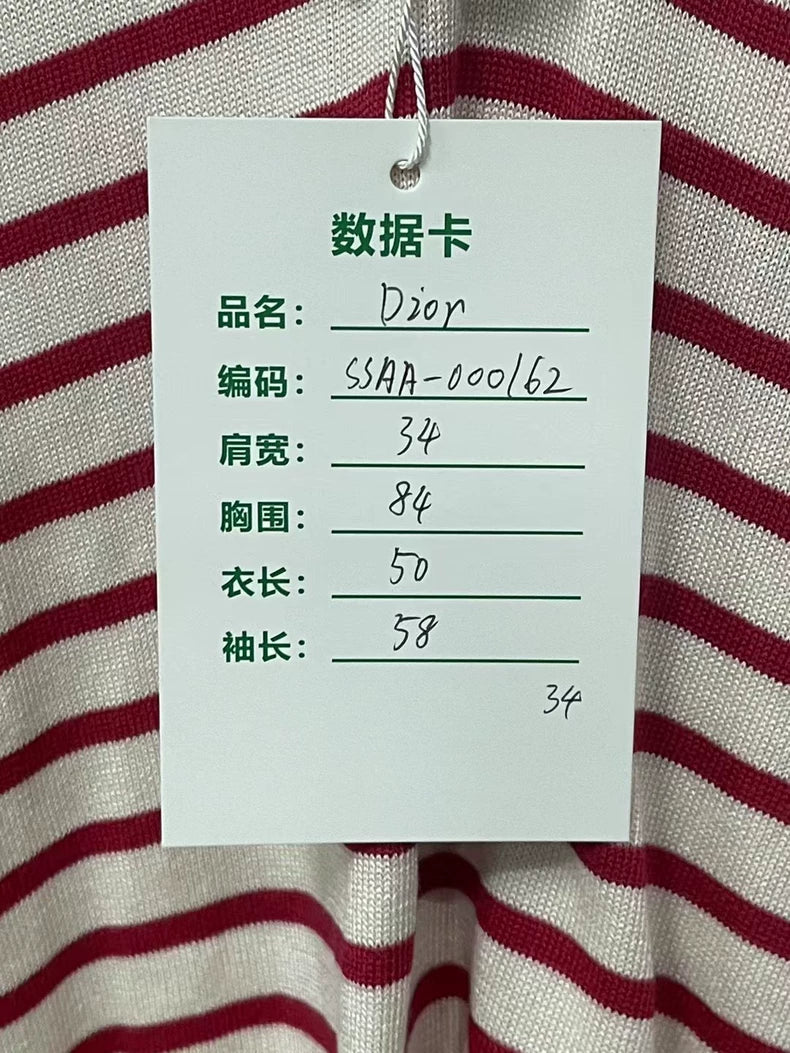 数据卡
品名: Dior
编码: SSAA-000162
肩宽: 34
胸围: 84
衣长: 50
袖长: 58
34